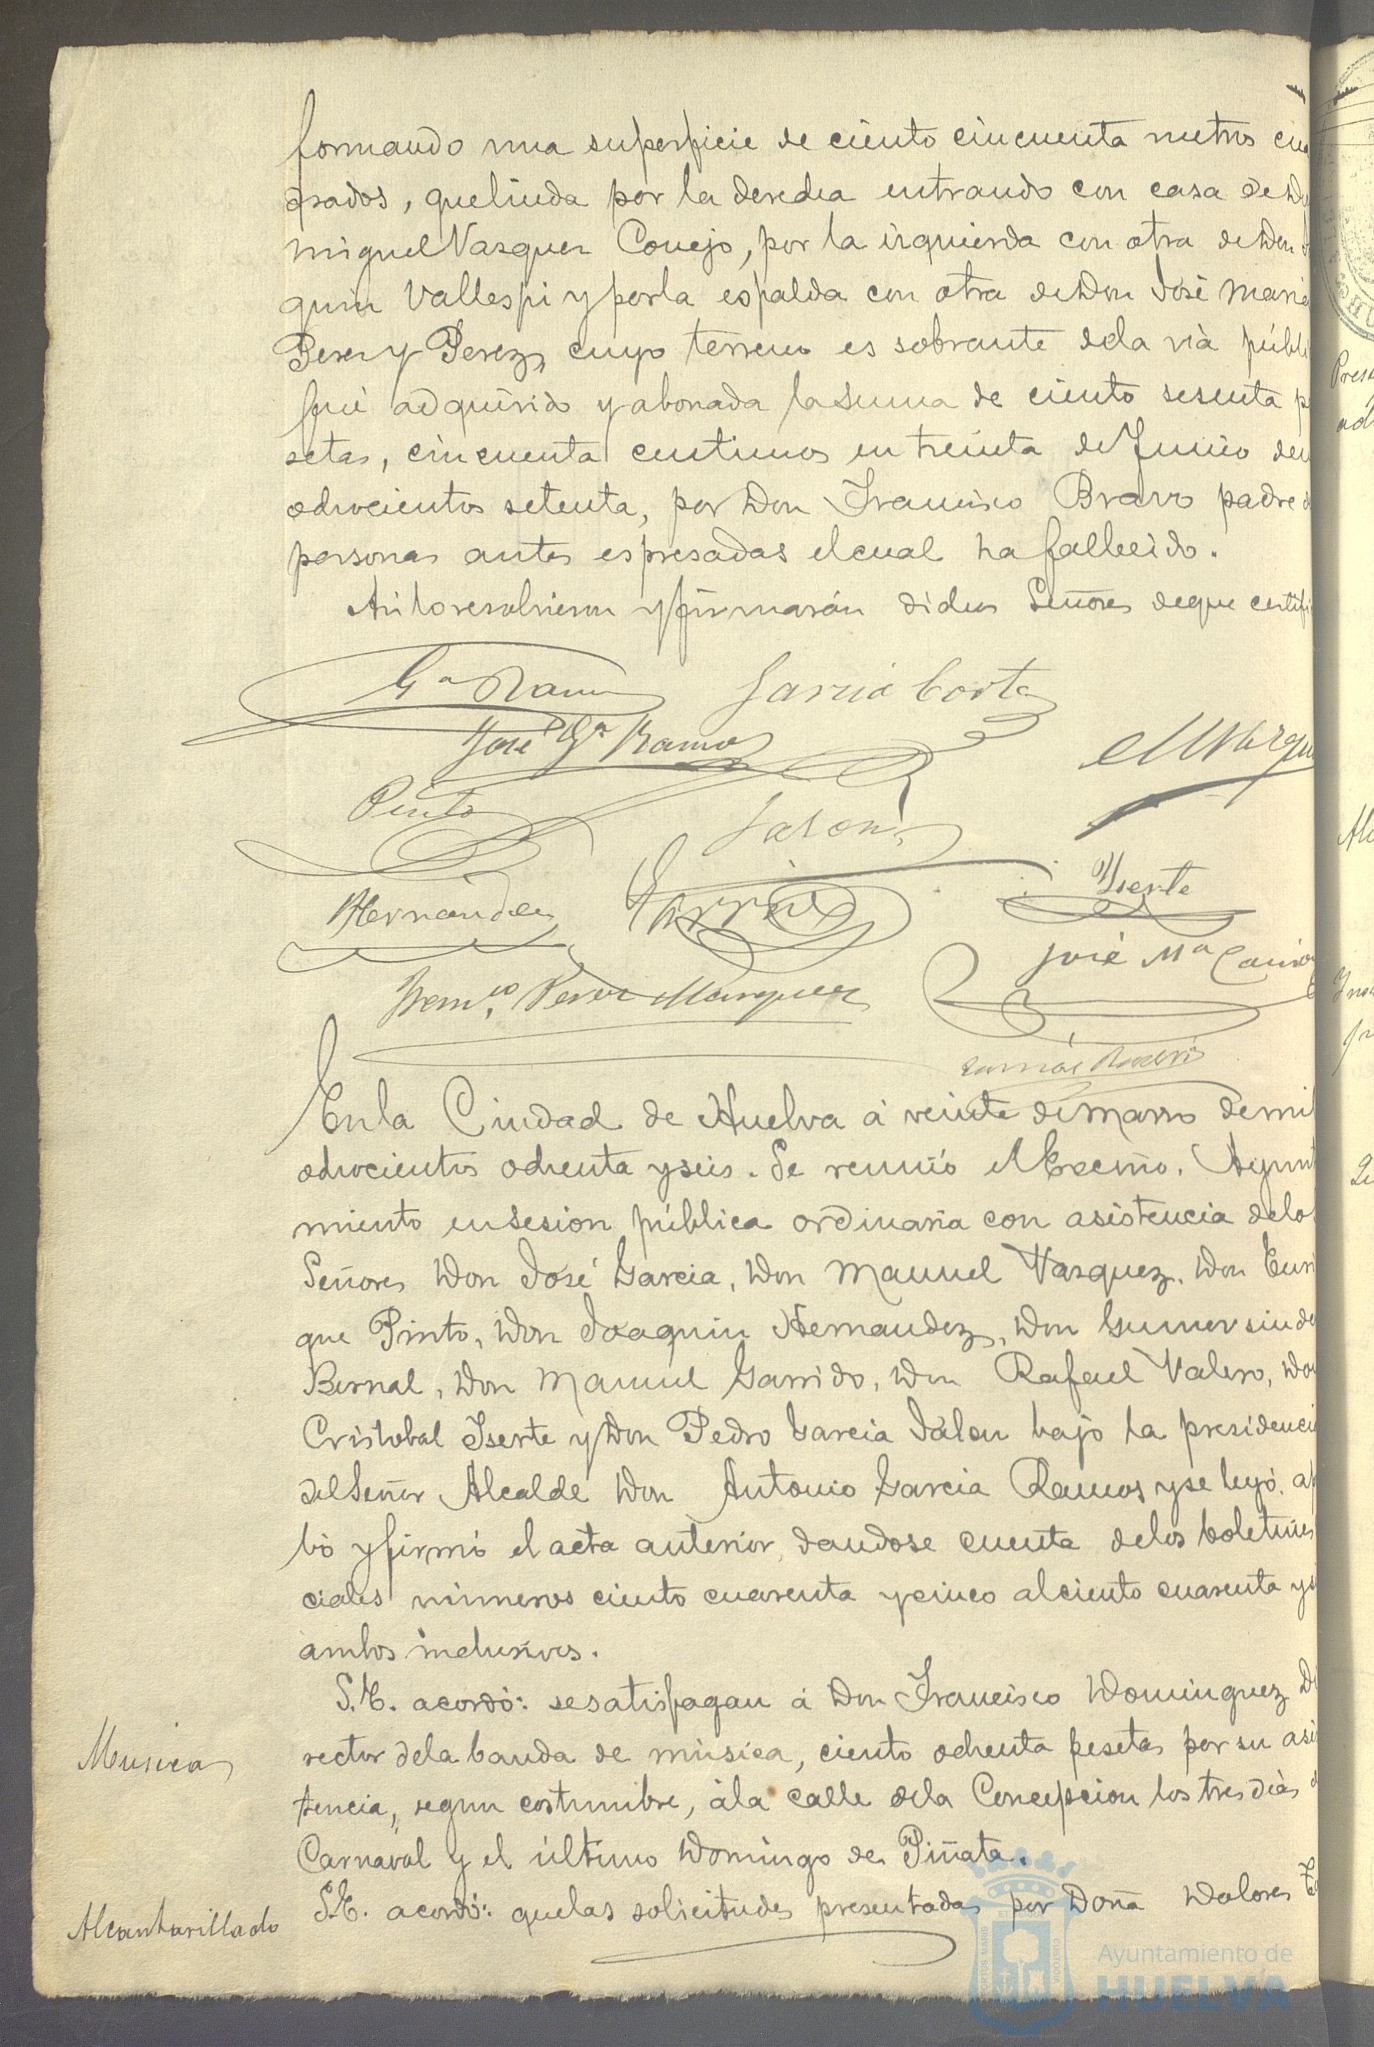 formando una superficie de ciento cincuenta metros cua
drados, que linda por la derecha entrando con casa de Dn
Miguel Vasquez Conejo, por la izquierda con otra de Don
quin Vallespi y por la espalda con otra de Don José Maria
Perez y Perez, cuyo terreno es sobrante de la via públi
fué adquirido y abonada la suma de ciento sesenta p
setas, cincuenta centimos en treinta de Junio de
ochocientos setenta, por Don Francisco Bravo padre
personas antes espresadas el cual ha fallecido.
Asi lo resolvieron y firmarán dichos Señores de que certifi
Gª Ramos
Garcia Corte
José Gª Ramos
M Vazqu
Pinto
Jalon
Hernandez
Garrido
Yserte
José Mª
Franco Perez Marquez
En la Ciudad de Huelva á veinte de Marzo de mil
ochocientos ochenta y seis. Se reunió el Excmo. Ayunt
miento en sesion pública ordinaria con asistencia de lo
Señores Don José Garcia, Don Manuel Vasquez, Don Enri
que Pinto, Don Joaquin Hernandez, Don Gumersindo
Bernal, Don Manuel Garrido, Don Rafael Valero, Don
Cristobal Iserte y Don Pedro Garcia Jalon bajo la presidenci
del Señor Alcalde Don Antonio Garcia Ramos y se leyó, ap
bó y firmó el acta anterior, dandose cuenta de los boletines
ciales números ciento cuarenta y cinco al ciento cuarenta y s
ambos inclusives.
S.E. acordó: se satisfagan á Don Francisco Dominguez Di
Musica
rector de la banda de música, ciento ochenta pesetas por su asis
tencia, segun costumbre, á la calle de la Concepcion los tres dias
Carnaval y el último Domingo de Piñata.
Alcantarillado
S.E. acordó: que las solicitudes presentadas por Doña Dolores
Ayuntamiento de
HUELVA